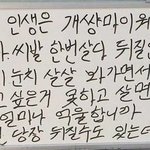 인생은 개쌍마이웨
씨발 한번살다 뒤질인
눈치 살살 봐가면서
싶은거 못하고 살면
얼마나 억울합니까
당장 뒤질수도 있는데